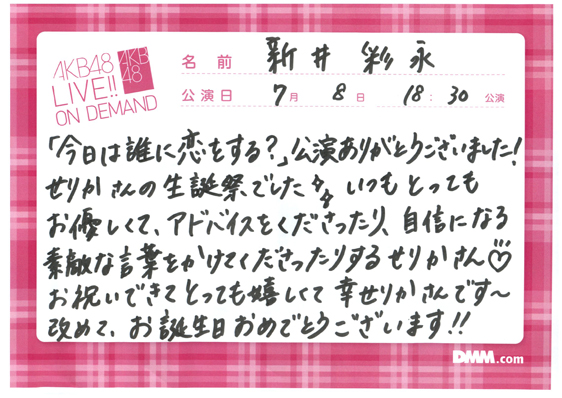 AKB48
LIVE!!
ON DEMAND
AKB
48
名前 新井 彩永
公演日 7月 8日 18:30 公演
「今日は誰に恋をする？」公演ありがとうございました!
せりかさんの生誕祭でした いつもとっても
お優しくて、アドバイスをくださったり、自信になる
素敵な言葉をかけてくださったりするせりかさん♡
お祝いできてとっても嬉しくて幸せりかさんです〜
改めて、お誕生日おめでとうございます!!
DMM.com